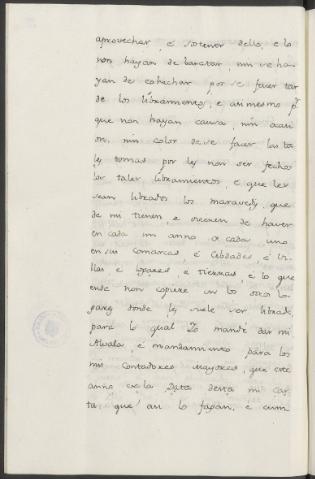 aprovechar, é sotener dello, e lo
non hayan de baratar, nin se ha-
yan de cohechar por se facer tar
de los libramientos, e asi mesmo pr.
que non hayan causa, nin ocasi
on, nin color de se facer las ta
les tomas por les non ser fechos
los tales libramientos, e que les
sean librados los maravedis, que
de mi tienen, e ovieren de haver
en cada un anno a cada uno
en sus Comarcas é Cibdades é Vi-
llas é logares, é tierras, é lo que
ende non copiere en los otros lo-
gares donde les suele ser librado,
para lo qual Yo mandé dar mi
Alvala, é mandamiento para los
mis Contadores mayores, que este
anno de la Data desta mi car
ta, que ansi lo fagan, é cum-